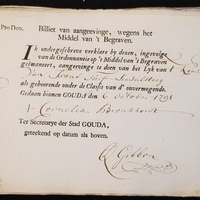 Pro Deo.
Billiet van aangeevinge, wegens het
Middel van 't Begraven.
Ik ondergeschreve verklare by dezen, ingevolge
van de Ordonnantie op 't Middel van 't Begraven
geëmaneert, aangeevinge te doen van het Lyk van
Van
als gehorende onder de Classis van d' onvermogende.
Gedaan binnen GOUDA den 6 October 1791
Cornelia
Ter Secretarye der Stad GOUDA,
geteekend op datum als boven.